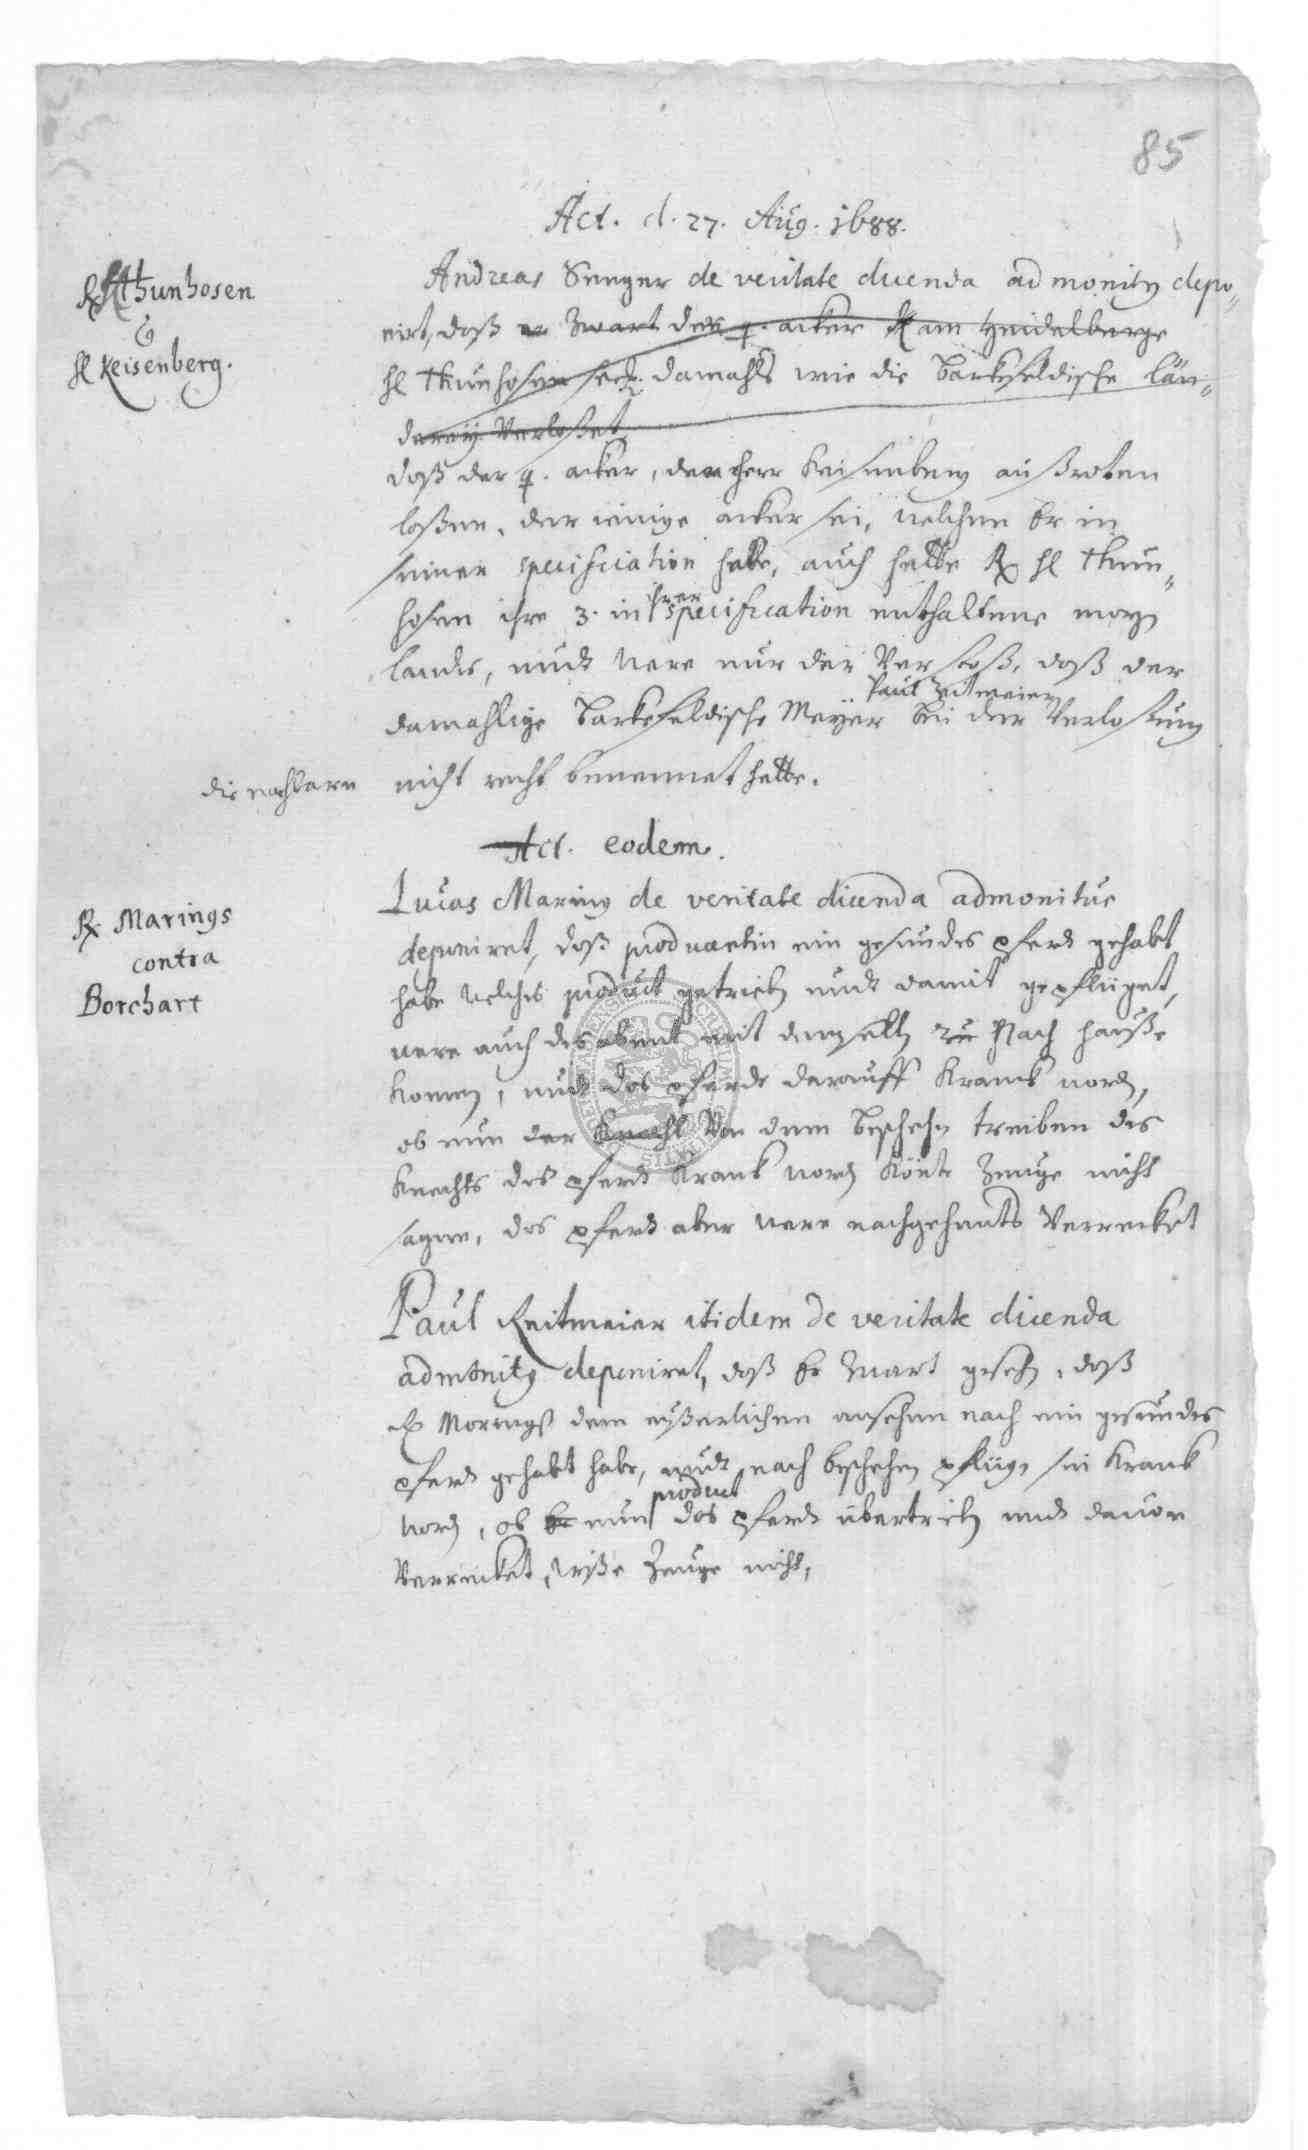 85
Act. d. 27. Aug. 1688.
Thunhosen
Hl Keisenberg.
Andreas Senger de veritate dicenda admonitg depo„
nirt, daß er Zwart der q. acker am Heidelberge
Hl Thunhosen damahls wie die Barkfeldische län„
derey Verloßet
daß der q. acker, den Herr Keisenberg außroten
loßen, der ienige acker sei, welchen Er in
seiner specification habe, auch hette Hl Thun„
hosen ihre 3. in ihrer specification enthaltene morg
landes, undt were nur der Verstoß, daß der
damahlige Barkefeldische Meyer Paul Reitmeier bei der Verlosung
die nachbarn nicht recht benennet hette.
Act. eodem.
Marings
contra
Borchart
Lucas Maring de veritate dicenda admonitus
deponiret, daß producentin ein gesundes pferdt gehabt
habe welches product getrieb undt damit gepflüget,
were auch des abent mit demselb zu Nach hauße
komen, undt das pferdt darauff Kranck word,
ob nun der Knecht Von dem beschehn treiben des
Knechts das pferdt Kranck word könte Zeuge nicht
sagen, das pferdt aber were nachgehents Verrecket
Paul Reitmeier itidem de veritate dicenda
admonitg deponiret, daß Er Zwart gesehn, daß
Marings dem eußerlichen ansehen nach ein gesundes
pferdt gehabt habe, undt nach beschehen pflüg sei Kranck
word, ob Er nun product das pferdt übertrieb undt davon
Verrecket, wiße Zeuge nicht,